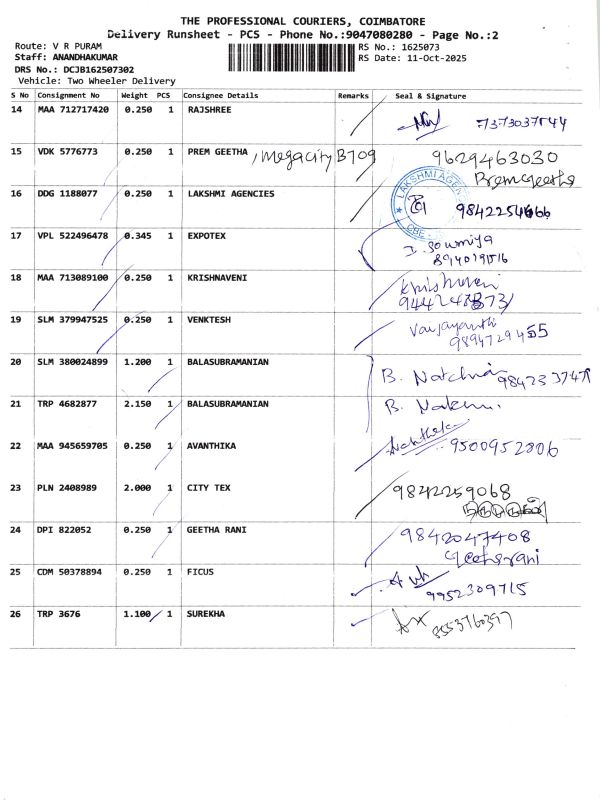 THE PROFESSIONAL COURIERS, COIMBATORE
Delivery Runsheet - PCS - Phone No.:9047080280 - Page No.:2
Route: V R PURAM
Staff: ANANDHAKUMAR
DRS No.: DCJB162507302
Vehicle: Two Wheeler Delivery
RS No.: 1625073
RS Date: 11-Oct-2025
S No Consignment No Weight PCS Consignee Details Remarks Seal & Signature
14 MAA 712717420 0.250 1 RAJSHREE
15 VDK 5776773 0.250 1 PREM GEETHA , Megacity B709 9629463030
Premgeetha
16 DDG 1188077 0.250 1 LAKSHMI AGENCIES LAKSHMI AGEN CBE
17 VPL 522496478 0.345 1 EXPOTEX I. Soumiya
18 MAA 713089100 0.250 1 KRISHNAVENI Krishnaveni
19 SLM 379947525 0.250 1 VENKTESH Vaijayanthi
20 SLM 380024899 1.200 1 BALASUBRAMANIAN B.
21 TRP 4682877 2.150 1 BALASUBRAMANIAN B.
22 MAA 945659705 0.250 1 AVANTHIKA 9500952806
23 PLN 2408989 2.000 1 CITY TEX 9842259068
24 DPI 822052 0.250 1 GEETHA RANI 9842047408
Geetharani
25 CDM 50378894 0.250 1 FICUS 9952309715
26 TRP 3676 1.100 1 SUREKHA